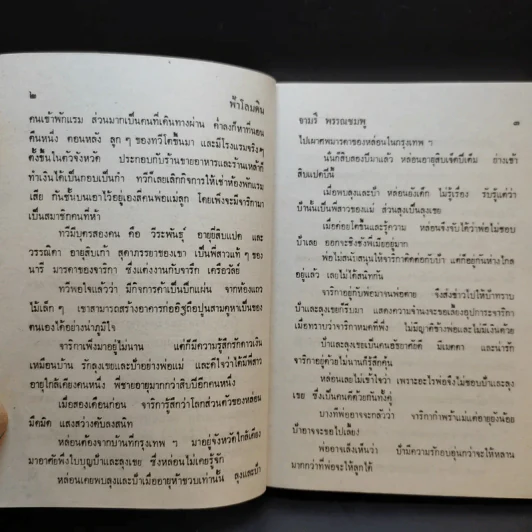 ๒
ฟ้าโลมดิน
คนเข้าพักแรม ส่วนมากเป็นคนที่เดินทางผ่าน ค่ำลงก็หาที่นอน
คืนหนึ่ง ตอนหลัง ลูก ๆ ของทวีโตขึ้นมา และมีโรงแรมจริงๆ
ตั้งขึ้นในตัวจังหวัด ประกอบกับร้านขายอาหารและร้านเหล้าก็
ทำเงินได้เป็นกอบเป็นกำ ทวีก็เลยเลิกกิจการให้เช่าห้องพักแรม
เสีย กันชั้นบนเอาไว้อยู่เองสี่คนพ่อแม่ลูก โดยเพิ่งจะมีจาริกามา
เป็นสมาชิกคนที่ห้า
ทวีมีบุตรสองคน คือ วีระพันธุ์ อายุยี่สิบแปด และ
วรรณิดา อายุสิบเก้า สุดาภรรยาของเขา เป็นพี่สาวแท้ ๆ ของ
นารี มารดาของจาริกา ซึ่งแต่งงานกับจาริก เครือวัลย์
ทวีพอใจแล้วว่า มีกิจการค้าเป็นปึกแผ่น จากห้องแถว
ไม้เล็กๆ เขาสามารถสร้างอาคารก่ออิฐถือปูนสามคูหาเป็นของ
ตนเองได้อย่างน่าภูมิใจ
จาริกาเพิ่งมาอยู่ไม่นาน แต่ก็มีความรู้สึกรักดาวเงิน
เหมือนบ้าน รักลุงเขยและป้าอย่างพ่อแม่ และดีใจว่าได้มีพี่สาว
อายุใกล้เคียงคนหนึ่ง พี่ชายอายุมากกว่าสิบปีอีกคนหนึ่ง
เมื่อสองเดือนก่อน จาริการู้สึกว่าโลกส่วนตัวของหล่อน
มืดมิด แสงสว่างดับลงสนิท
หล่อนต้องจากบ้านที่กรุงเทพ ฯ มาอยู่จังหวัดใกล้เคียง
มาอาศัยพึ่งใบบุญป้าและลุงเขย ซึ่งหล่อนไม่เคยรู้จัก
หล่อนเคยพบลุงและป้าเมื่ออายุห้าขวบเท่านั้น ลุงและป้า
จามรี พรรณชมพู
๓
ไปเผาศพมารดาของหล่อนในกรุงเทพ ฯ
นั่นก็สิบสองปีมาแล้ว หล่อนอายุสิบเจ็ดปีเต็ม ย่างเข้า
สิบแปดปีนี้
เมื่อพบลุงและป้า หล่อนยังเด็ก ไม่รู้เรื่อง รับรู้แต่ว่า
ป้านั้นเป็นพี่สาวของแม่ ส่วนลุงเป็นลุงเขย
เมื่อค่อยโตขึ้นและรู้ความ หล่อนจึงจับได้ว่าพ่อไม่ชอบ
ป้าเลย ออกจะชิงชังพี่เมียอยู่มาก
พ่อไม่สนับสนุนให้จาริกาติดต่อกับป้า แต่ก็อยู่กันห่างไกล
อยู่แล้ว เลยไม่ได้สนิทกัน
จาริกาอยู่กับพ่อมาจนพ่อตาย จึงส่งข่าวไปให้ป้าทราบ
ป้าและลุงเขยก็รีบมา แสดงความจำนงจะขอเลี้ยงอุปการะจาริกา
เมื่อทราบว่าจาริกาหมดที่พึ่ง ไม่มีญาติข้างพ่อและไม่มีเงินด้วย
ป้าและลุงเขยเป็นคนอัธยาศัยดี มีเมตตา และน่ารัก
จาริกาอยู่ด้วยไม่นานก็รู้สึกคุ้น
หล่อนเลยไม่เข้าใจว่า เพราะอะไรพ่อจึงไม่ชอบป้าและลุง
เขย ซึ่งเป็นคนดีด้วยกันทั้งคู่
บางทีพ่ออาจจะกลัวว่า จาริกากำพร้าแม่แต่อายุยังน้อย
ป้าอาจจะขอไปเลี้ยง
พ่ออาจเล็งเห็นว่า ป้ามีความรักอบอุ่นกว่าจะให้หลาน
มากกว่าที่พ่อจะให้ลูกได้